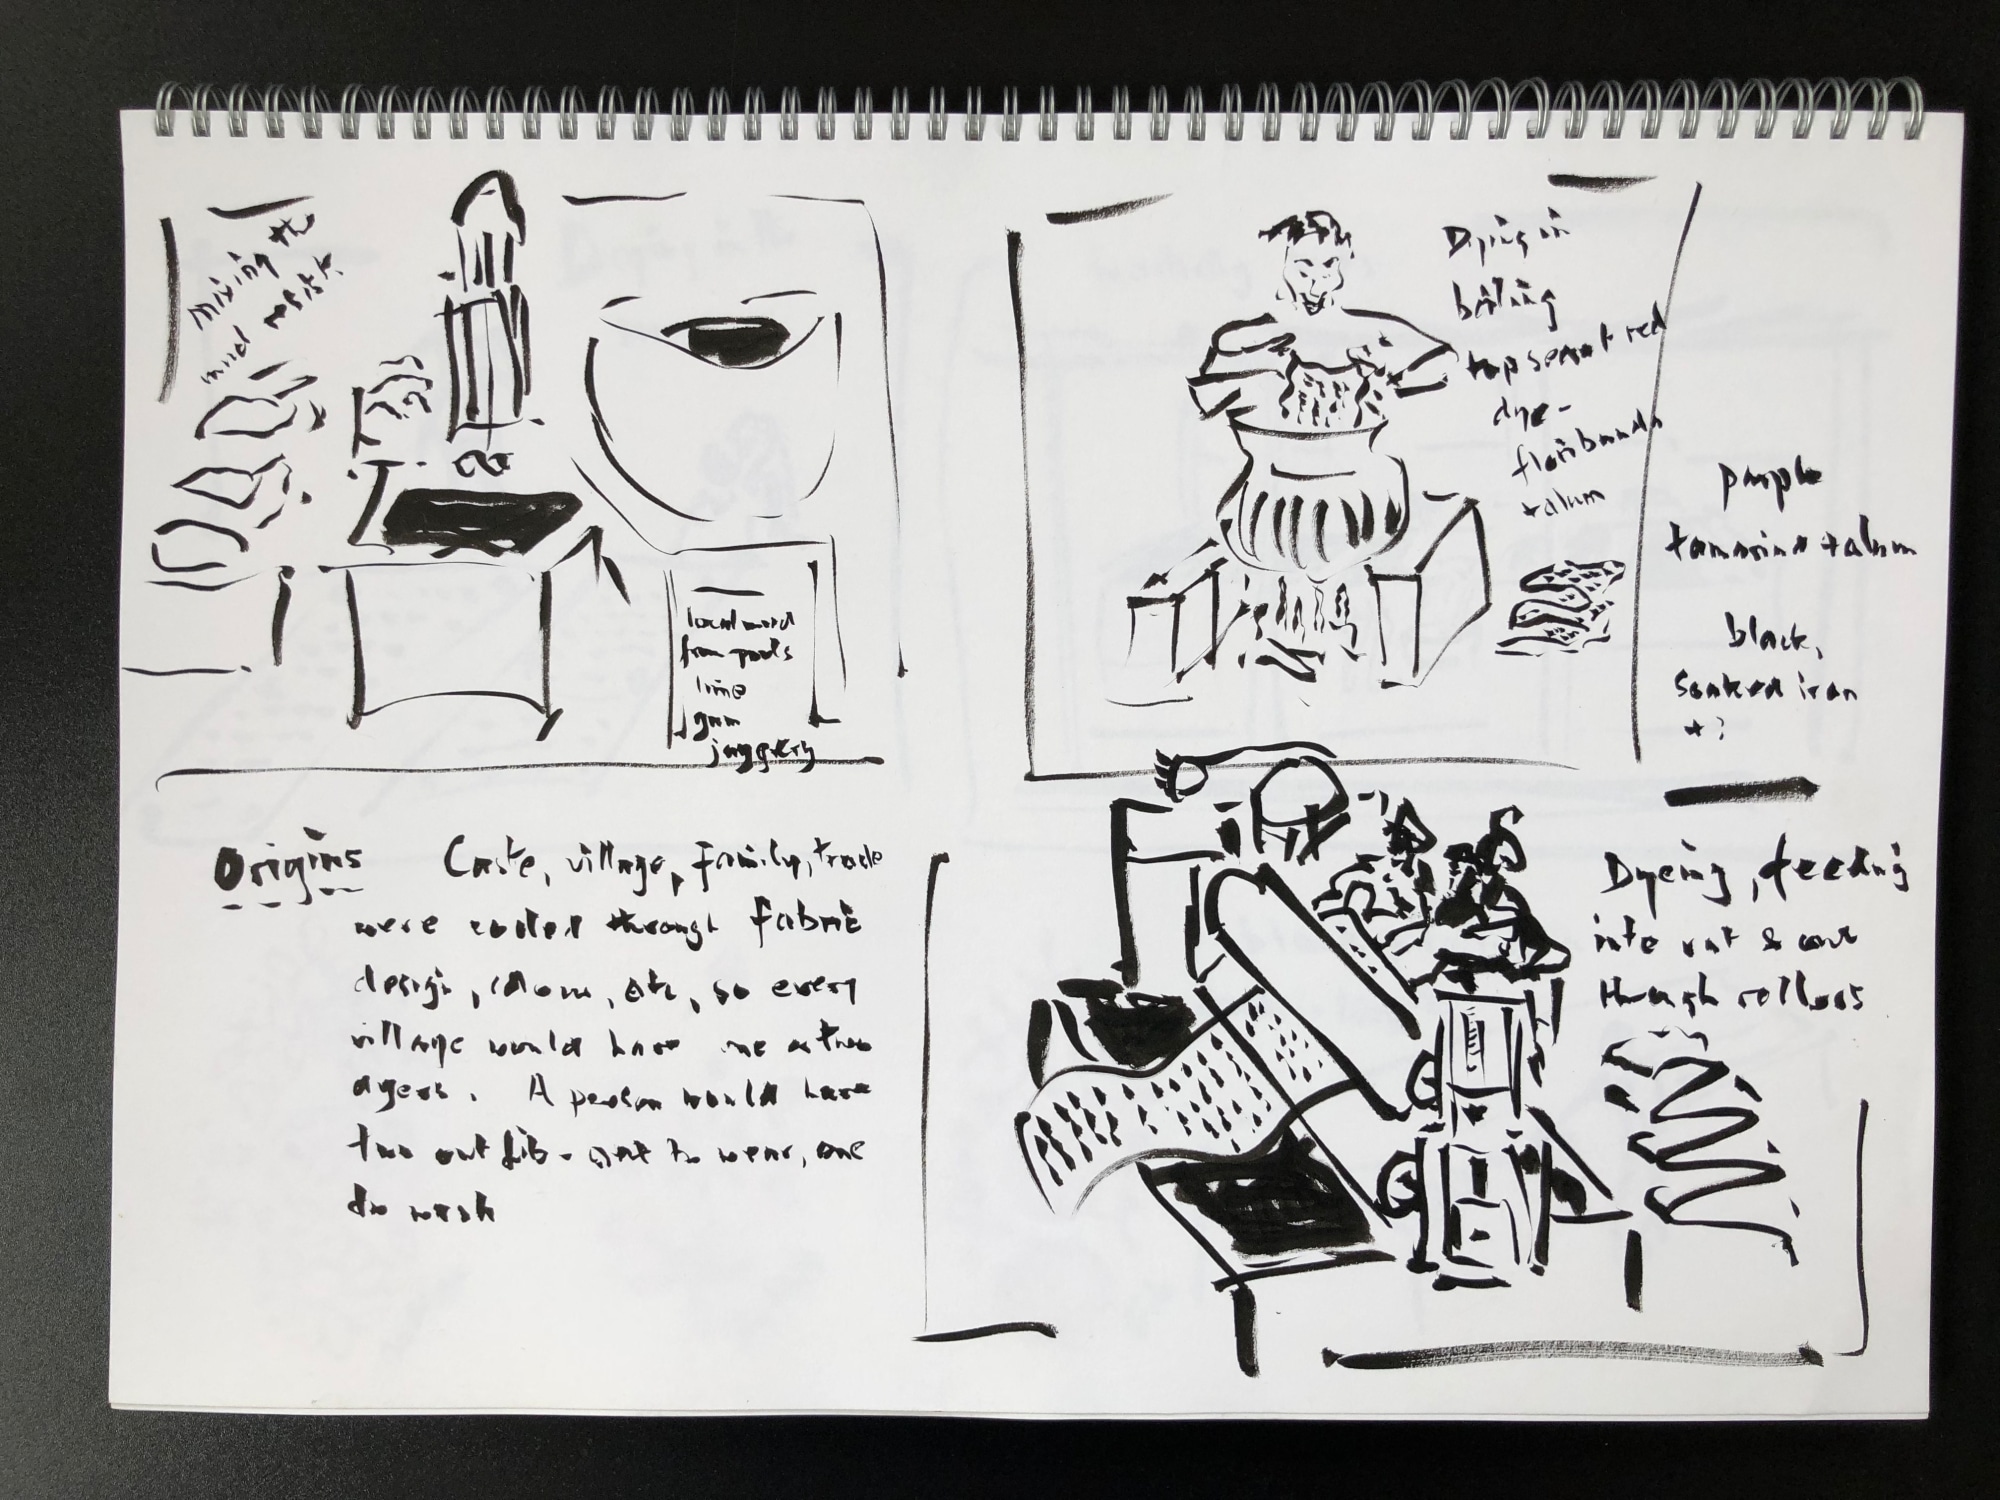 mixing the
mud resist.
local mud
from pools
lime
gum
jaggery
Dying in
boiling
top semat red
dye-
floribunda
+alum
purple
tamarind +alum
black,
soaked iron
+?
Origins Caste, village, family, trade
were coded through fabric
design, colour, etc, so every
village would have one or two
dyers. A person would have
two outfits - one to wear, one
to wash
Dyeing, feeding
into vat & out
through rollers